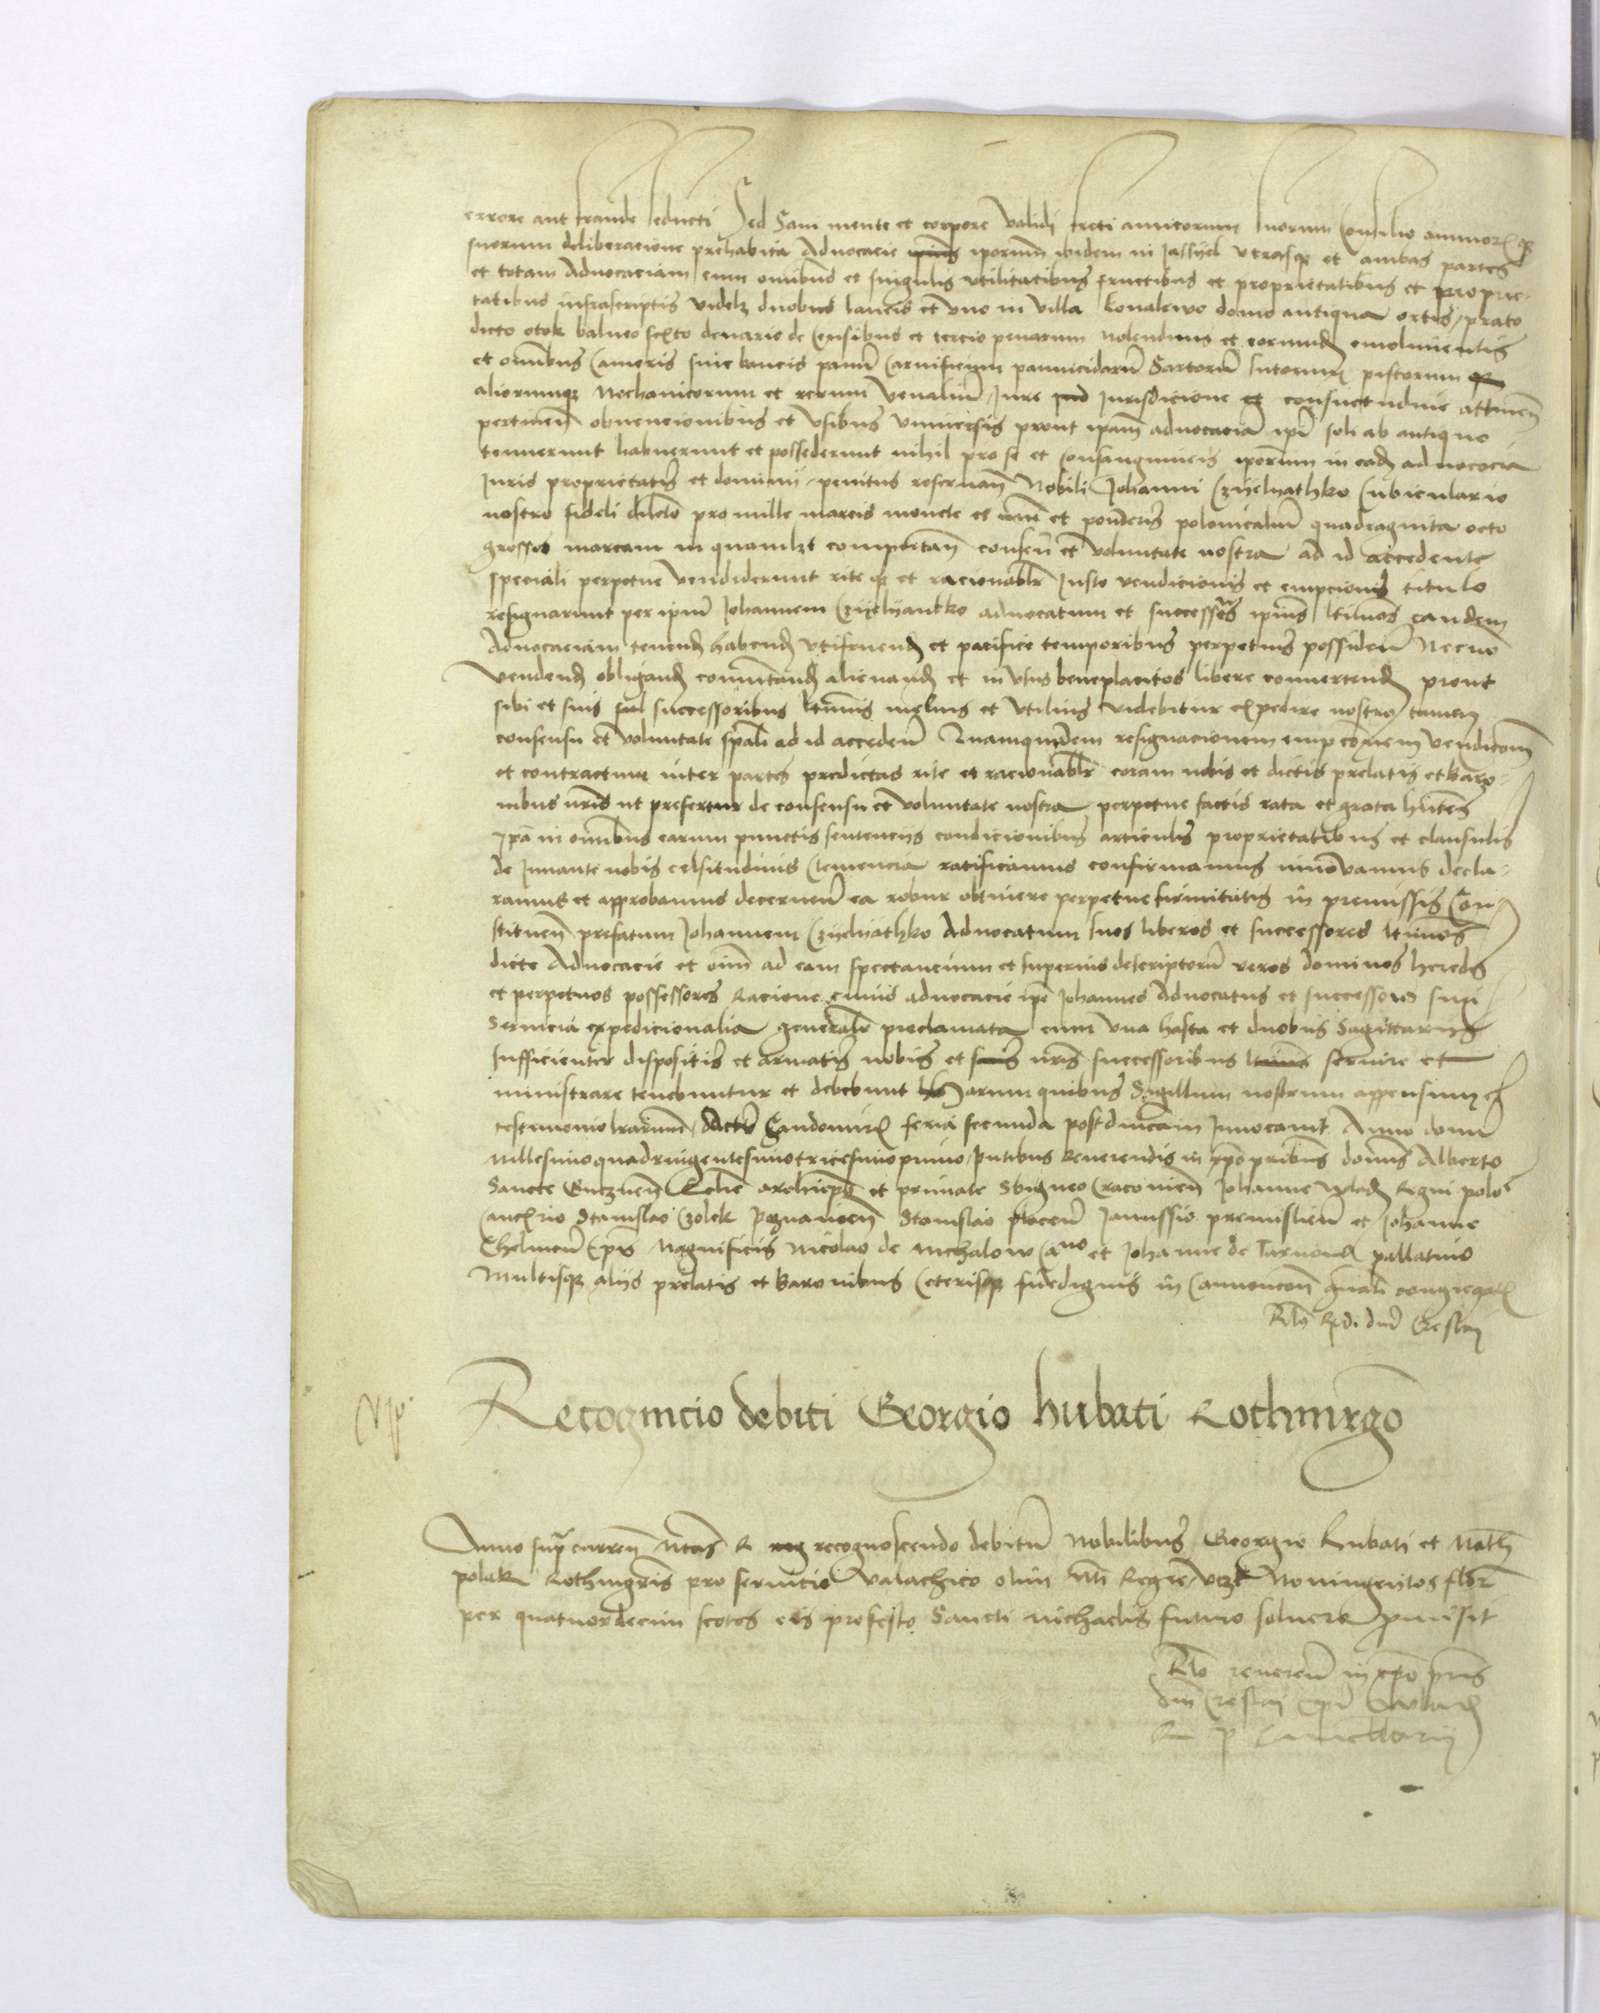 errore aut fraude seducti Sed Sani mente et corpore validi freti amicorum suorum Consilio animorumque
suorum deliberacione prehabita Advocacie ipsorum ibidem in Jasszyel utrasque et ambas partes
et totam Advocaciam cum omnibus et singulis utilitatibus fructibus et proprietatibus et proprie-
tatibus infrascriptis videlz duobus laneis et uno in villa Kovalewo domo antiqua ortis prato
dicto otok balneo sexto denario de Censibus et tercio penarum Molendinis et eorundem emolimentis
et omnibus Cameris sive bancis panum Carnificum pannicidarum Sartorum sutorum pistorum
aliorumque Mechanicorum et rerum venalium Jure Jurisdicione et consuetudine attinen
pertinen obvencionibus et usibus universis prout ipam advocacia ipi soli ab antiquo
tenuerunt habuerunt et possederunt nihil pro se et consanguineis iporum in eadem advocacia
Juris proprietatis et dominii penitus reservan Nobili Johanni Czyelyathko Cubiculario
nostro fideli dilecto pro mille marcis monete et numeri et ponderis polonicalium quadraginta octo
grossos marcam in quamlibet computan consensu et voluntate nostra ad id accedente
speciali perpetue vendiderunt rite et racionabiliter Justo vendicionis et empcionis titulo
resignarunt per ipum Johannem Czyelyantko advocatum et successores ipius ltimos eandem
Advocaciam tenend habend utifruend et pacifice temporibus perpetuis possidend Necnon
vendend obligand commutand alienand et in usus beneplacitos libere convertend prout
sibi et suis successoribus ltimis melius et utilius videbitur expedire nostro tamen
consensu et voluntate spali ad id acceden Quamquidem resignacionem empconem vendiconem
et contractum inter partes predictas rite et racionabiliter coram nobis et dictis prelatis et baro-
nibus nris ut prefertur de consensu et voluntate nostra perpetue factis rata et grata hntes
Ipa in omnibus earum punctis sentenciis condicionibus articulis proprietatibus et clausulis
de Innante nobis celsitudinis Clemencia ratificamus confirmamus innovamus decla-
ramus et approbamus decernen ea robur obtinere perpetue firmitatis in premissis Con-
stituen prefatum Johannem Czyelyathko Advocatum suos liberos et successores ltimos
dicte Advocacie et oim ad eam spectancium et superius descriptorum veros dominos heredes
et perpetuos possessores Racione cuius advocacie ipe Johannes Advocatus et successores sui
Servicia expedicionalia generalia proclamata cum una hasta et duobus Sagittariis
sufficienter dispositis et armatis nobis et nris successoribus servire et
ministrare tenebuntur et debebunt Harum quibus Sigillum nostrum appensum est
testimonio lrarum Actum Sandomirie feria secunda post dnicam Invocavit Anno domini
Millesimoquadringentesimotricesimoprimo pntibus Reverendis in xpo pribus dominis Alberto
Sancte Gneznen Eclie archiepo et primate Sbigneo Cracovien Johanne Wlad Regni polo
Cancrio Stanislao Czolek Poznanien Stanislao plocen Janussio premislien et Johanne
Chelmen Epis Magnificis Nicolao de Michalow Cano et Johanne de Tarnow pallatino
Multisque aliis prelatis et baronibus Ceterisque fidedignis in Convencone gnali congregat
Rlo Rdi dni Creslai
Recognicio debiti Georgio hubati Rothmrgo
Anno supra curren Mtas R recognoscendo debitum Nobilibus Georgio hubati et Math
polak Rothmgris pro servicio valachico olim Mti Regie Nomingentos flor
per quatuordecim scotos eis pro festo Sancti Michaelis futuro solvere pmisit
Rlo reveren in xpo pris
dni Creslai Epi Wlad
R P Cancellarii